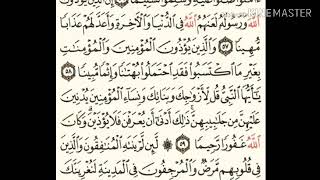 KINEMASTER
صَلُّوا۟ عَلَيْهِ وَسَلِّمُوا۟ تَسْلِيمًا ٥٦ إِنَّ ٱلَّذِينَ يُؤْذُونَ
ٱللَّهَ وَرَسُولَهُۥ لَعَنَهُمُ ٱللَّهُ فِى ٱلدُّنْيَا وَٱلْـَٔاخِرَةِ وَأَعَدَّ لَهُمْ عَذَابًا
مُّهِينًا ٥٧ وَٱلَّذِينَ يُؤْذُونَ ٱلْمُؤْمِنِينَ وَٱلْمُؤْمِنَـٰتِ
بِغَيْرِ مَا ٱكْتَسَبُوا۟ فَقَدِ ٱحْتَمَلُوا۟ بُهْتَـٰنًا وَإِثْمًا مُّبِينًا ٥٨
يَـٰٓأَيُّهَا ٱلنَّبِىُّ قُل لِّأَزْوَٰجِكَ وَبَنَاتِكَ وَنِسَآءِ ٱلْمُؤْمِنِينَ يُدْنِينَ
عَلَيْهِنَّ مِن جَلَـٰبِيبِهِنَّ ذَٰلِكَ أَدْنَىٰٓ أَن يُعْرَفْنَ فَلَا يُؤْذَيْنَ وَكَانَ
ٱللَّهُ غَفُورًا رَّحِيمًا ٥٩ لَّئِن لَّمْ يَنتَهِ ٱلْمُنَـٰفِقُونَ وَٱلَّذِينَ
فِى قُلُوبِهِم مَّرَضٌ وَٱلْمُرْجِفُونَ فِى ٱلْمَدِينَةِ لَنُغْرِيَنَّكَ